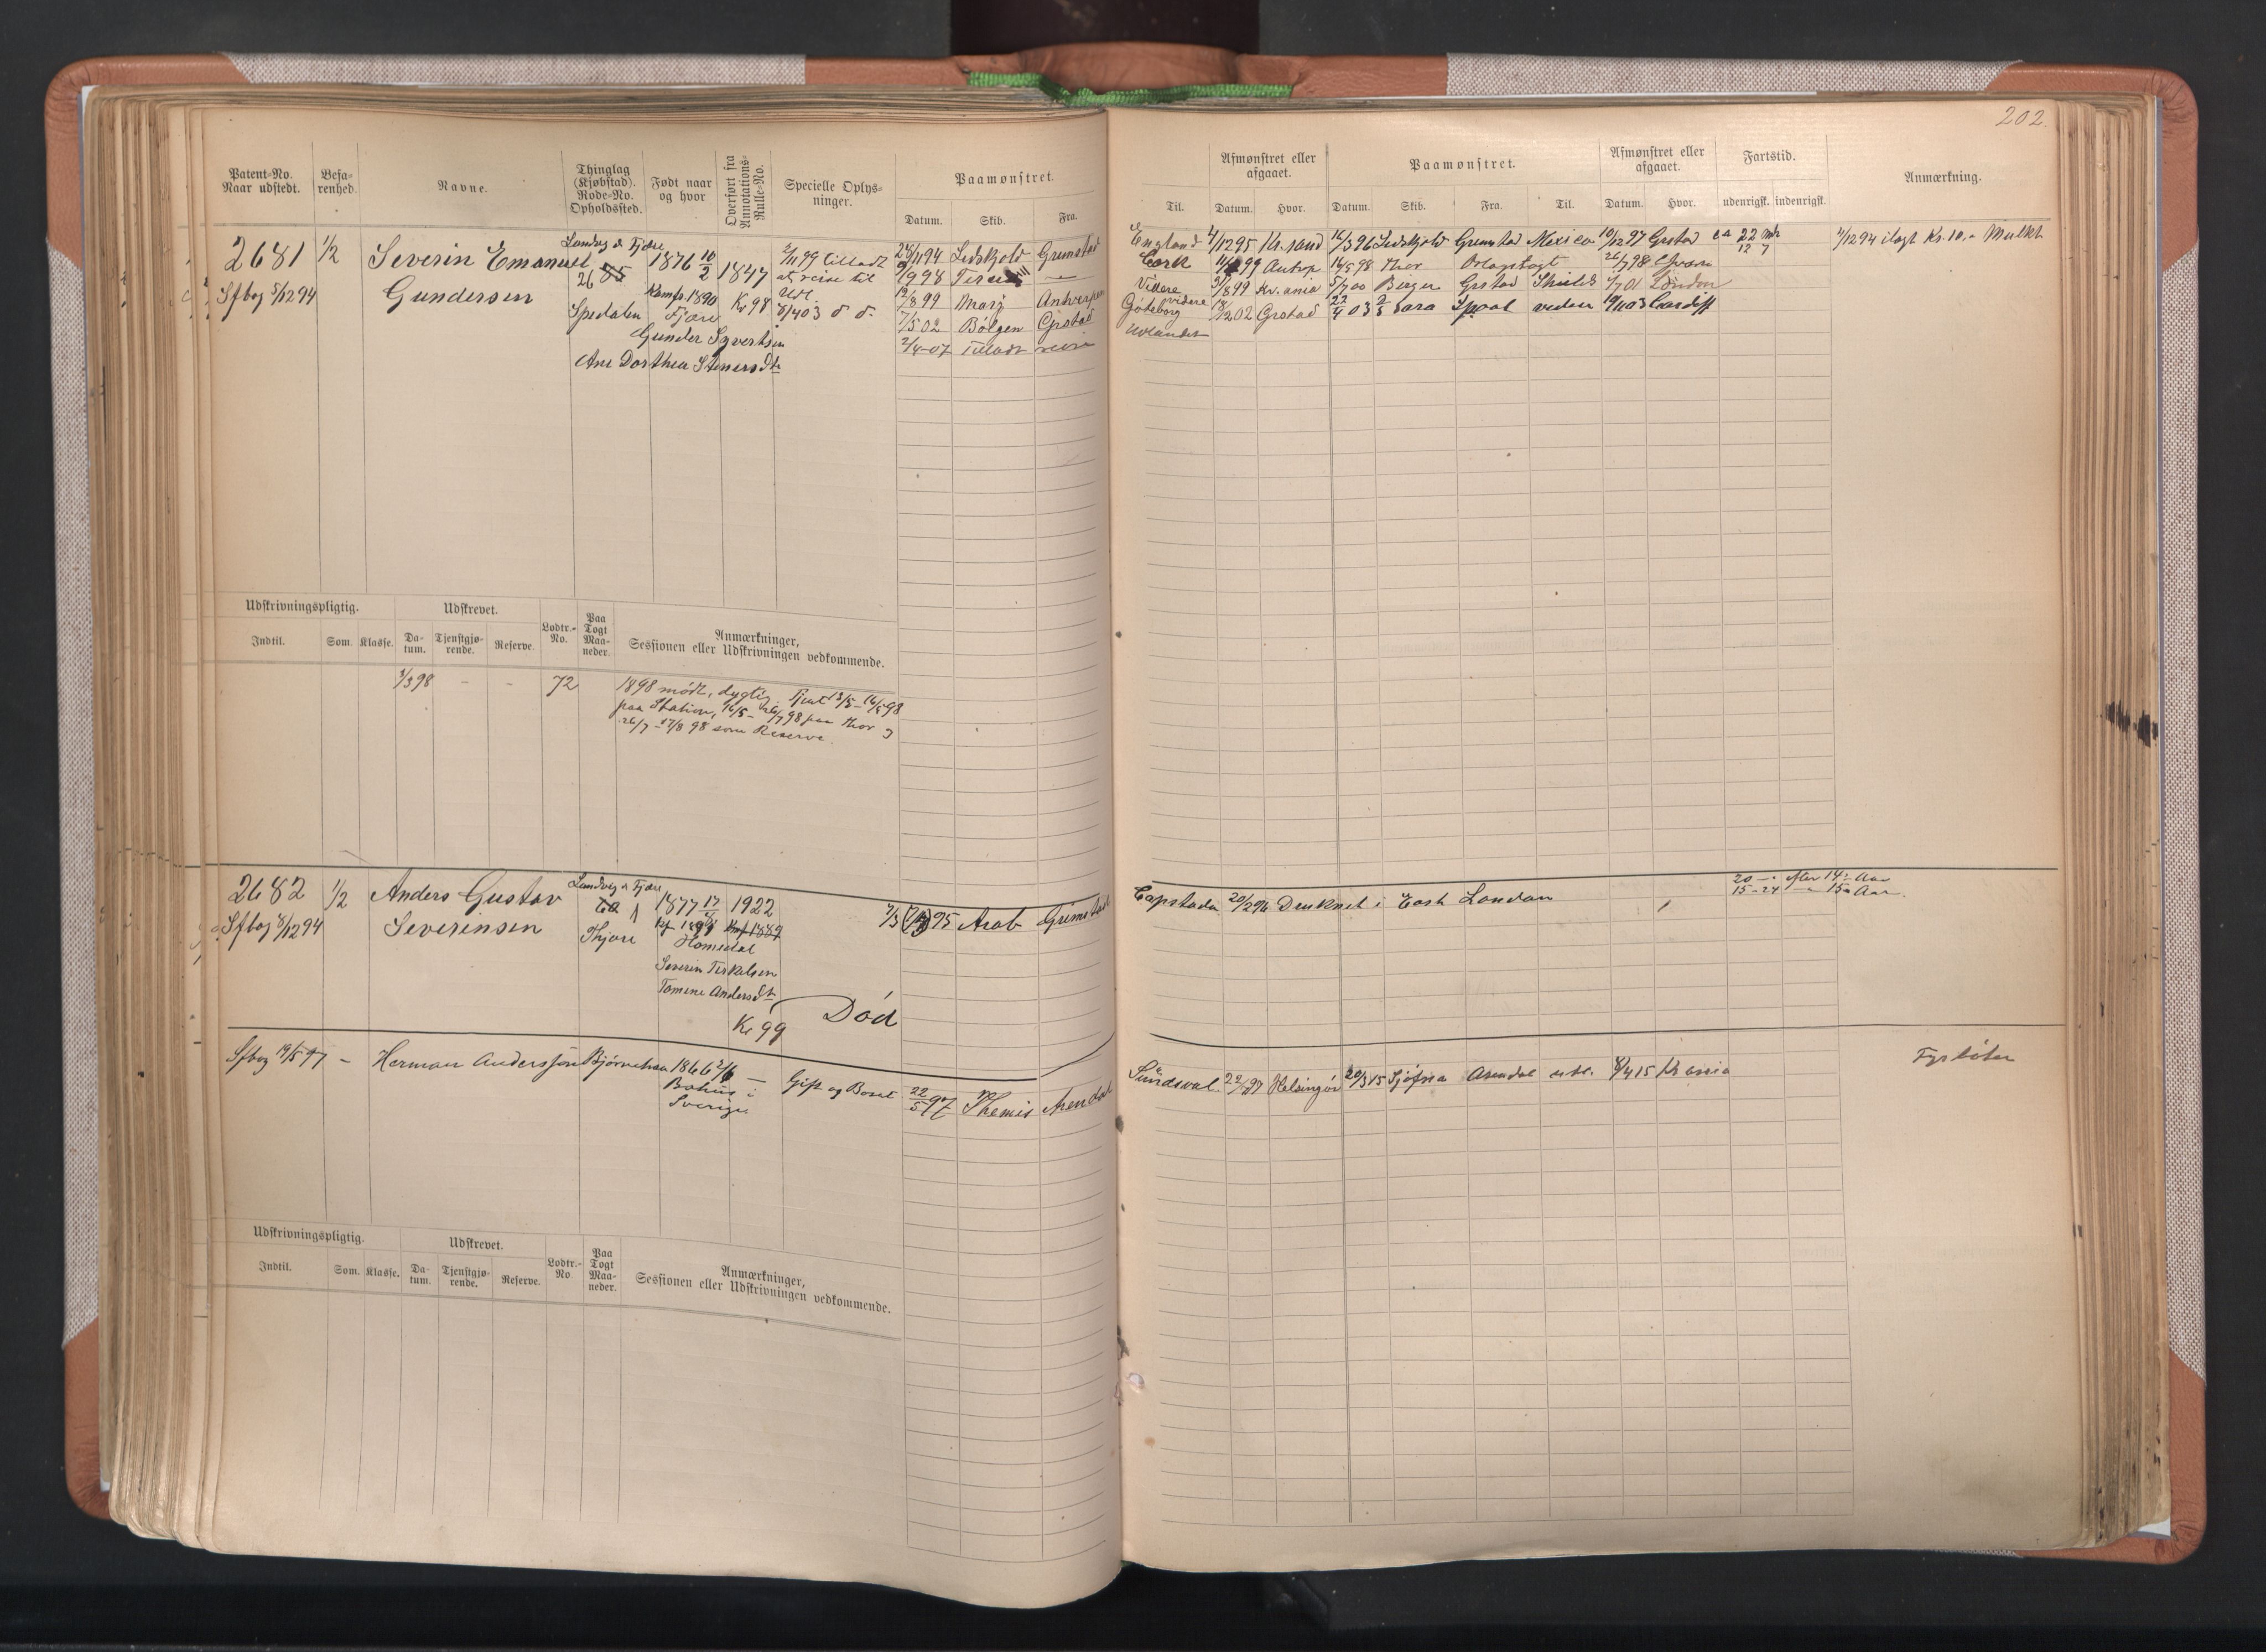 202.
Patent-No. Naar udstedt.
Befarenhed.
Navne.
Thinglag (Kjøbstad). Rode-No. Opholdssted.
Født naar og hvor
Overført fra Annotations-Rulle-No.
Specielle Oplysninger.
Paamønstret.
Datum. Skib. Fra.
Til.
Afmønstret eller afgaaet.
Datum. Hvor.
Paamønstret.
Datum. Skib. Fra. Til.
Afmønstret eller afgaaet.
Datum. Hvor.
Fartstid.
udenrigsk. indenrigsk.
Anmærkning.
2681 1/2 Severin Emanuel
Gundersen
Sfbog 5/12 94
Landvig & Fjære
26
Spedalen
1876 10/2
Konf. 1890
Fjære
1847
Kr 98
Gunder Syvertsen
Ane Dorthea Steners Dtr
2/11 99 tilladt
at reise til
Udl.
8/4 03 d d.
28/11 94 Ledskjold Grimstad
England 4/12 95 Kr.sand 16/3 96 Ledskjold Grimstad Mexico 10/12 97 Grstad ca 22 mdr
12 7
4/12 94 ilagt Kr. 10,- Mulkt
9/9 98
Cork 99 Antwp 16/5 98 Thor Orlogstogt 26/7 98
12/8 99 Marj Antwerpen
Videre 31/8 99 Kr.ania 5/7 00 Birger Grstad Shields 01 London
7/5 02 Bølgen Grstad
Göteborg videre 18/2 02 Grstad 22/4 03 Sara Spaal veden 19/11 03 Cardiff
2/4-07 Tilladt reise
Udlandet
Udskrivningspligtig.
Indtil. Som. Klasse.
Udskrevet.
Datum. Tjenstgjørende. Reserve.
Lodtr.-No.
Paa Togt Maaneder.
Anmærkninger,
Sessionen eller Udskrivningen vedkommende.
1/3 98 - - 72
1898 mødt, dygtig. Tjent 13/5 - 16/5 98
paa Station, 16/5 - 26/7 98 paa Thor og
26/7 - 17/8 98 som Reserve.
2682 1/2 Anders Gustav
Severinsen
Sfbog 8/12 94
Landvig & Fjære
1877 17/
1922
Homedal
Severin Terkelsen
Tomine Anders Dtr
Kr 99
Død
95 Arab Grimstad
Capstaden 20/2 96 Druknet i East London
20 - - efter 14 - Aar
15 - 24 - 15 - Aar.
Sfbog 19/5 97 - Herman Andersson Bjørnehaa 1866 2/6 -
Bohus i
Sverige
Gift og Bosat
22/5 97 Themis Arendal
Sundsval. 22/ 97 Helsingør 20/3 15 Sjöfna Arendal utl. 8/4 15 Kr.ania
Fyrbøter
Udskrivningspligtig.
Indtil. Som. Klasse.
Udskrevet.
Datum. Tjenstgjørende. Reserve.
Lodtr.-No
Paa Togt Maaneder.
Anmærkninger,
Sessionen eller Udskrivningen vedkommende.